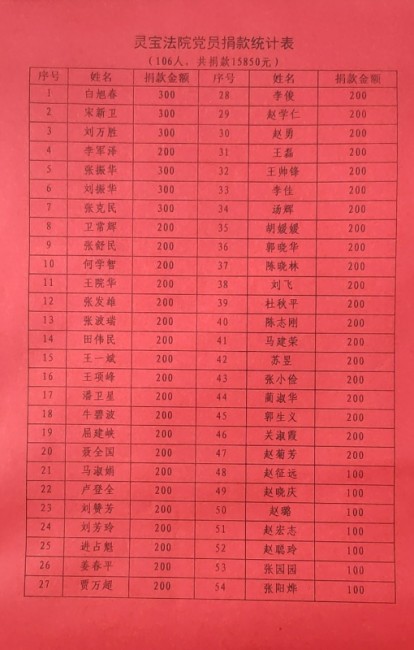 灵宝法院党员捐款统计表
(106人，共捐款15850元)
序号 姓名 捐款金额 序号 姓名 捐款金额
1 白旭春 300 28 李俊 200
2 宋新卫 300 29 赵学仁 200
3 刘万胜 300 30 赵勇 200
4 李军泽 200 31 王磊 200
5 张振华 300 32 王帅锋 200
6 刘振华 300 33 李佳 200
7 张克民 300 34 汤辉 200
8 卫常辉 200 35 胡媛媛 200
9 张舒民 200 36 郭晓华 200
10 何学智 200 37 陈晓林 200
11 王院华 200 38 刘飞 200
12 张发雄 200 39 杜秋平 200
13 张波瑞 200 40 陈志刚 200
14 田伟民 200 41 马建荣 200
15 王一斌 200 42 苏昱 200
16 王项峰 200 43 张小俭 200
17 潘卫星 200 44 蔺淑华 200
18 牛碧波 200 45 郭生义 200
19 屈建峡 200 46 关淑霞 200
20 聂全国 200 47 赵菊芳 200
21 马淑娟 200 48 赵征远 100
22 卢登全 200 49 赵晓庆 100
23 刘赞芳 200 50 赵璐 100
24 刘芳玲 200 51 赵宏志 100
25 进占魁 200 52 赵聪玲 100
26 姜春平 200 53 张园园 100
27 贾万超 200 54 张阳烨 100